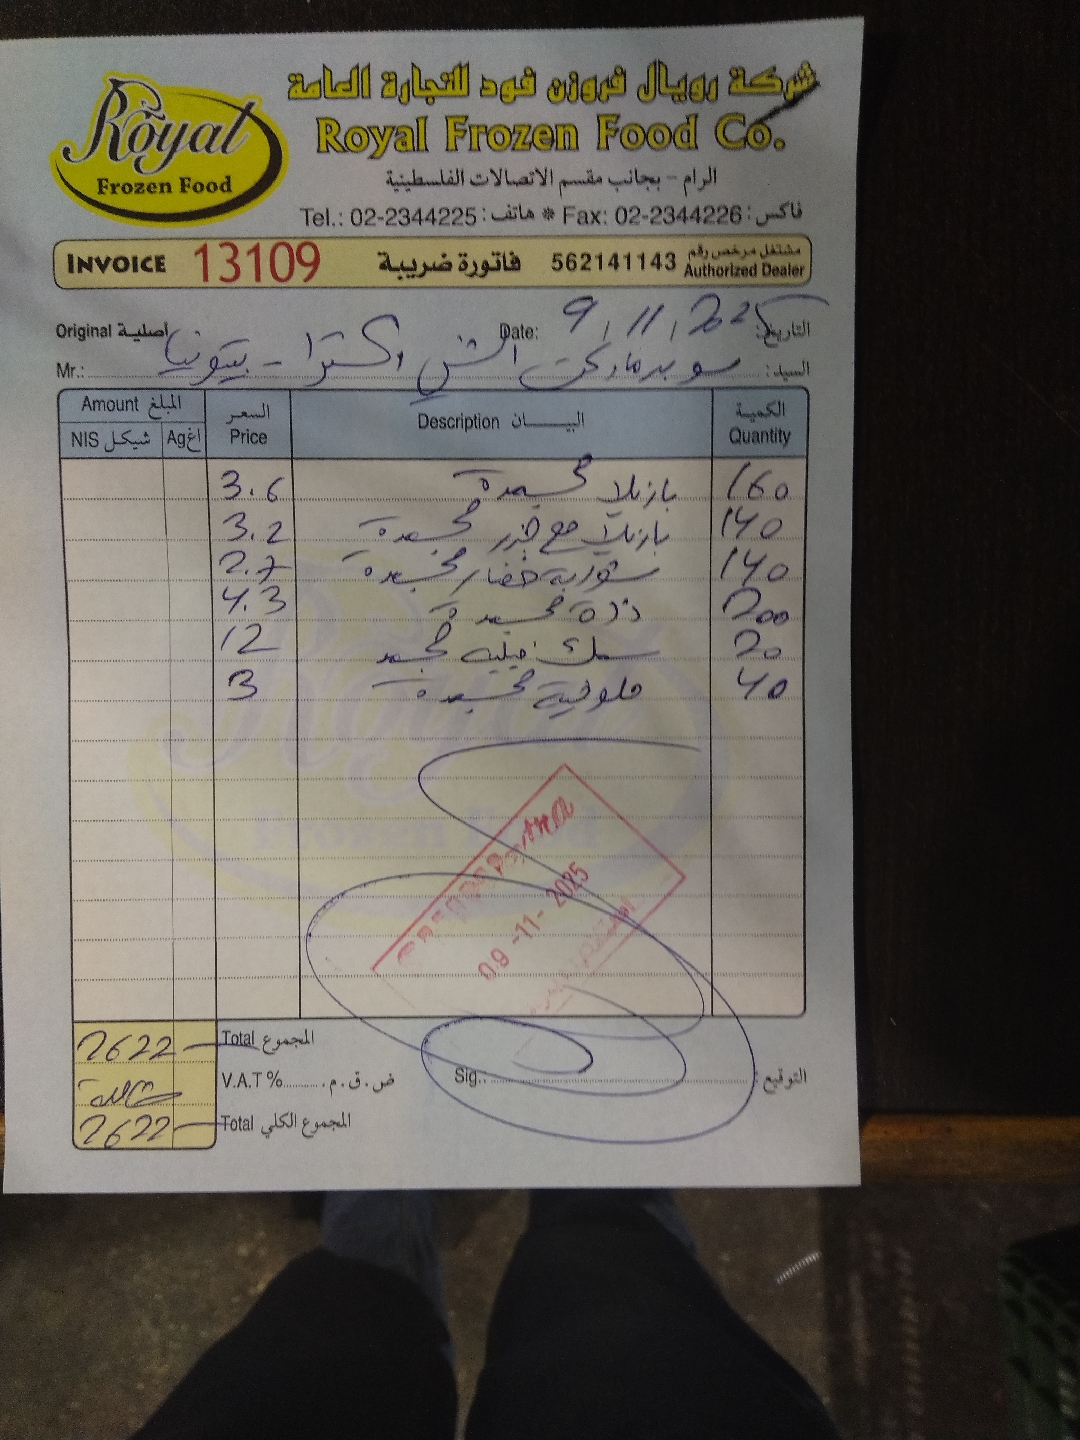 Royal
Frozen Food
شركة رويال فروزن فود للتجارة العامة
Royal Frozen Food Co.
الرام - بجانب مقسم الاتصالات الفلسطينية
Tel.: 02-2344225 : هاتف * Fax: 02-2344226 : فاكس
INVOICE 13109 فاتورة ضريبة 562141143 مشتغل مرخص رقم Authorized Dealer
Original أصلية Date: 9/11/2025 التاريخ:
Mr.: سوبرماركت الشني اكسترا - بيتونيا السيد:
Amount المبلغ السعر Price Description البيـــان الكمية Quantity
NIS شيكل Ag اغ
3.6 بازيلا مجمدة 160
3.2 بازيلا مع جزر مجمدة 140
2.7 شوربة خضار مجمدة 140
4.3 ذرة مجمدة 200
12 سمك فيليه مجمد 20
3 ملوخية مجمدة 40
09-11-2025
2622 Total المجموع
شاملة V.A.T % ض.ق.م. Sig.: التوقيع:
2622 Total المجموع الكلي